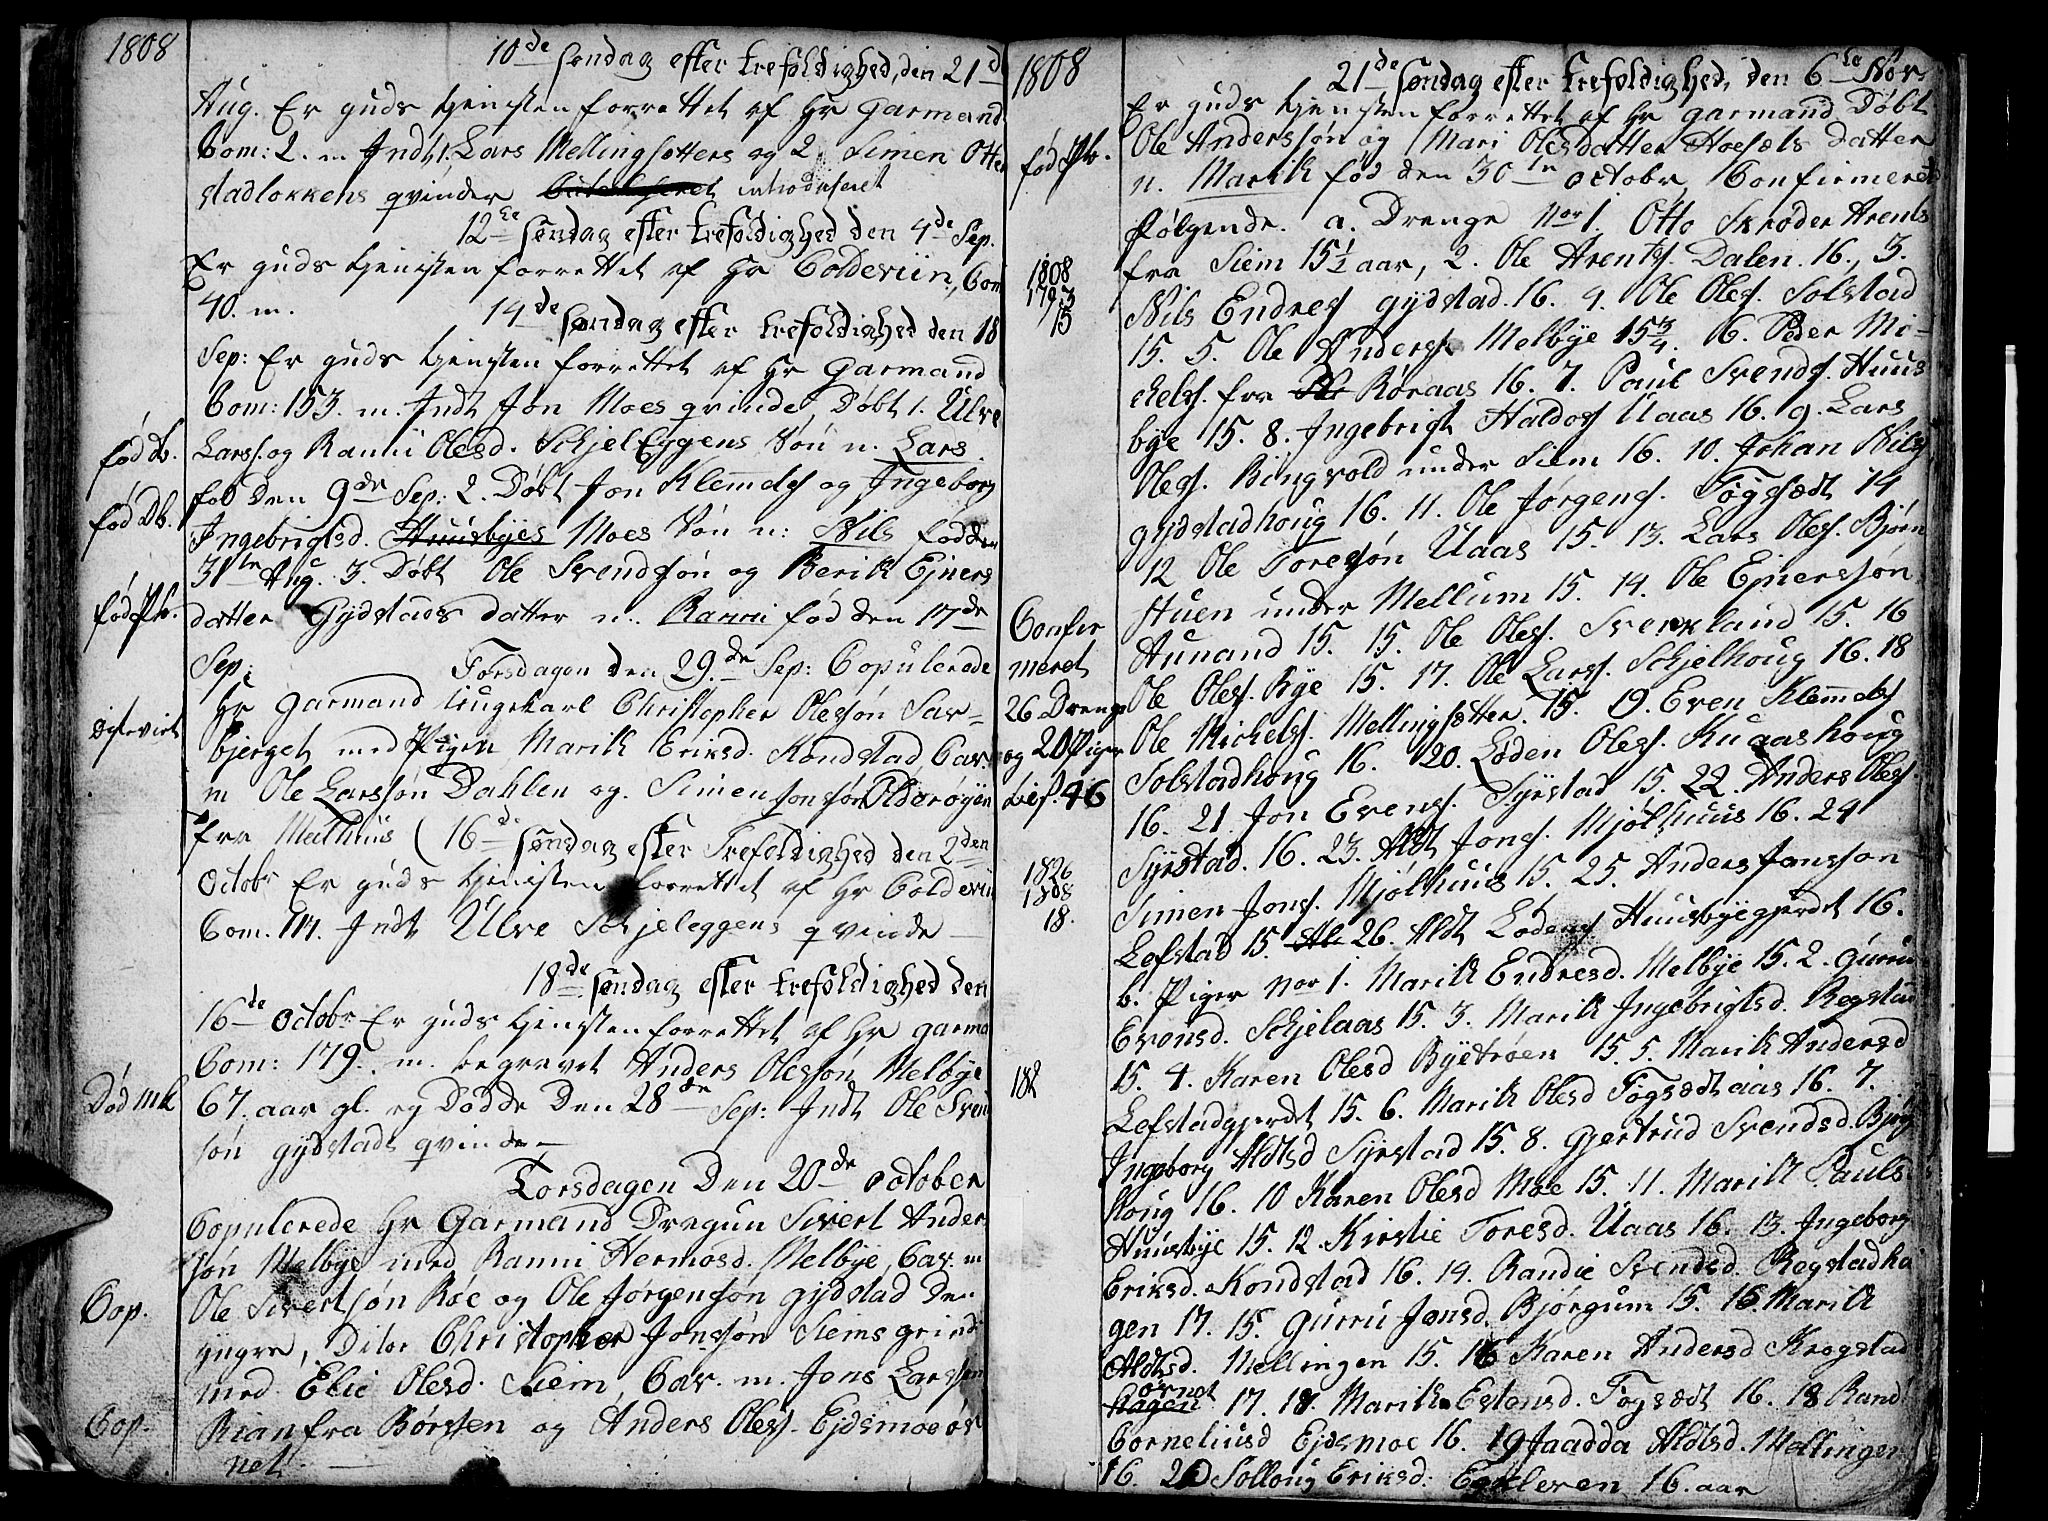 1808
10de søndag efter trefoldighed, den 21de
Aug. Er guds tjenisten forrettet af Hr Garmand
Com: 2. m Indt 1. Lars Mellingsætters og 2 Simen Otter
stadløkkens qvinder introduseret
12te søndag efter trefoldighed den 4de Sep.
Er guds tjenisten forrettet af Hr Coldeviin, Com
40. m.
14de søndag efter trefoldighed den 18
Sep: Er guds tjenisten forrettet af Hr Garmand
Com: 153. m. Indt Jon Moes qvinde, Døbt 1. Ulve
fød Db.
Larss. og Ranni Olesd. SchjelEggens Søn n. Lars.
fød Den 9de Sep: 2. Døbt Jon Klemmets og Ingeborg
fød Db.
Ingebrigtsd. Huusbyes Moes Søn n: Nils fødd den
31te Aug. 3. Døbt Ole Svendssøn og Berit Ejners
fød Pb.
datter Gydstads datter n. Ranni fød den 17de
Sep:
Torsdagen den 29de Sep: Copulerede
Hr Garmand ungekarl Christopher Olessøn Sar-
bjerget med Pigen Marit Eriksd. Kondstad Cav.
m Ole Larssøn Dahlen og Simen Jonssøn Olderøyen
fra Melhuus (16de søndag efter Trefoldighed den 2den
Octobr Er guds tjenisten forrettet af Hr Coldeviin
Com. 114. Indt Ulve Schjeleggens qvinde
18de søndag efter trefoldighed den
16de Octobr Er guds tjenisten forrettet af Hr garma
Com: 179. m. begravet Anders Olessøn Melbye
Død mk
67. aar gl. og Døde Den 28de Sep: Indt Ole Sven
søn gydstads qvinde
Torsdagen Den 20de October
Copulerede Hr Garmand Dragun Sivert Anders
søn Melbye med Ranni Hermosd. Melbye, Cav. m
Cop.
Ole Sivertsøn Røe og Ole Jørgensøn gydstad Den
yngre, Ditor Christopher Jonssøn Siems grind
med Elie Olesd. Siem, Cav. m. Jens Larssen
Cop.
Rian fra Børssen og Anders Oless. Ejdsmoe øv
net.
1808
21de søndag efter trefoldighed, den 6te Nov.
Er guds tjenisten forrettet af Hr garmand Døbt
fød Pb.
Ole Anderssøn og Mari Olesdatter Hoesæts datter
n. Marit fød den 30te octobr, Confirmeret
følgende. a. Drenge Nor 1. Otto Skrøder Arents
1808
1793
15
fra Siem 15 1/2 aar, 2. Ole Arents. Dalen. 16., 3.
Nils Endress gydstad. 16. 4. Ole Oless. Solstad
15. 5. Ole Anderss Melbye 15 3/4. 6. Peder Mi-
chelss. fra Røraas 16. 7. Paul Svends. Huus
bye 15. 8. Ingebrigt Haldoss Uaas 16. 9. Lars
Oless. Ringvold under Siem 16. 10. Johan Nils
gydstadhoug 16. 11. Ole Jørgens. Fogsædt 14
12 Ole Toresøn Uaas 15. 13. Lars Oless. Bjørn
stuen under Mellum 15. 14. Ole Ejnerssøn
Confir
meret
26 Drenge
og 20 Piger
Lief. 46
Aunand 15. 15. Ole Oless. Sverkland 15. 16
Ole Oless. Bye 15. 17. Ole Larss. Schjelhoug 16. 18
Ole Michelss. Mellingsætter. 15. 19. Even Klemmets
Solstadhoug 16. 20. Løden Oless. Kuaashoug
16. 21. Jon Evens. Syrstad 15. 22. Anders Oless.
Syrstad. 16. 23. Aldt Jons. Mjølhuus 16. 24
1826
1808
18.
Simen Jons. Mjølhuus 15. 25. Anders Jonsson
Lefstad 15. 26. Aldt Lødens. Huusbyegjerdet 16.
b. Piger Nor 1. Marit Endresd. Melbye 15. 2. Gurru
Evensd. Schjelaas 15. 3. Marit Ingebrigtsd. Rogstad
182
15. 4. Karen Olesd Byetrøen 15. 5. Marit Andersd
Lefstadgjerdet 15. 6. Marit Olesd Fogsædtaas 16. 7.
Ingeborg Aldtsd Syrstad 15. 8. Gjertrud Svendsd. Bjørg
houg 16. 10 Karen Olesd Moe 15. 11. Marit Pauls
Huusbye 15. 12. Kirstie Toresd. Uaas 16. 13. Ingeborg
Eriksd. Kondstad 16. 14. Randie Svendsd. Rogstadha
gen 17. 15. Gurru Jonsd. Bjørgum 15. 16. Marit
Aldtsd. Mellingen 15. 16 Karen Andersd Krogstad
øvnet
Hagen 17. 18. Marit Estensd. Fogsædt 16. 18 Rand
Corneliusd Ejdsmoe 16. 19 Jaadda Aldtsd. Mellingen
16. 20 Solloug Eriksd: Eggkleven 16. aar